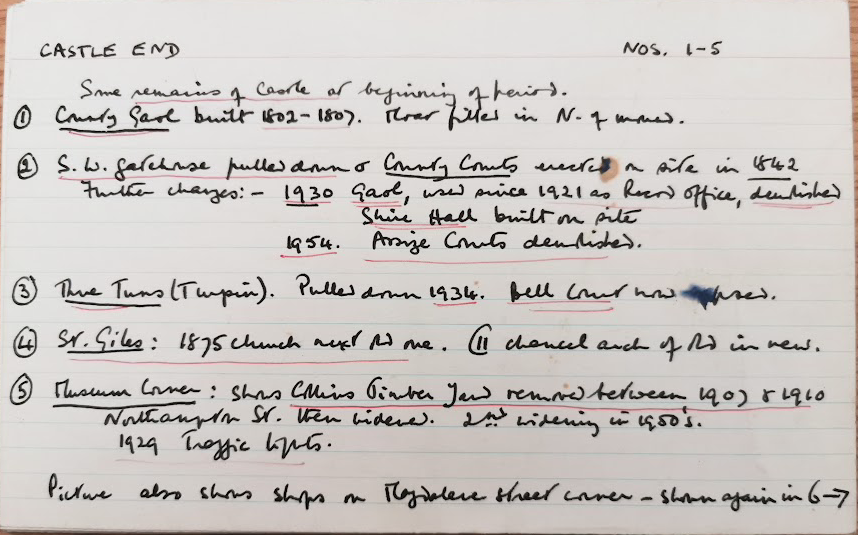 CASTLE END NOS. 1-5
Some remains of Castle at beginning of period.
① County Gaol built 1802-1807. Moat filled in N. of mound.
② S.W. gatehouse pulled down & County Courts erected on site in 1842
Further changes:- 1930 Gaol, used since 1921 as Record office, demolished
Shire Hall built on site
1954. Assize Courts demolished.
③ Three Tuns (Turpin). Pulled down 1934. Bell Court now
④ St. Giles: 1875 church next old one. C11 chancel arch of old in new.
⑤ Museum Corner: shows Collins Timber Yard removed between 1907 & 1910
Northampton St. then widened. 2nd widening in 1950's.
1929 Traffic lights.
Picture also shows shops on Magdalene street corner - shown again in 6 →